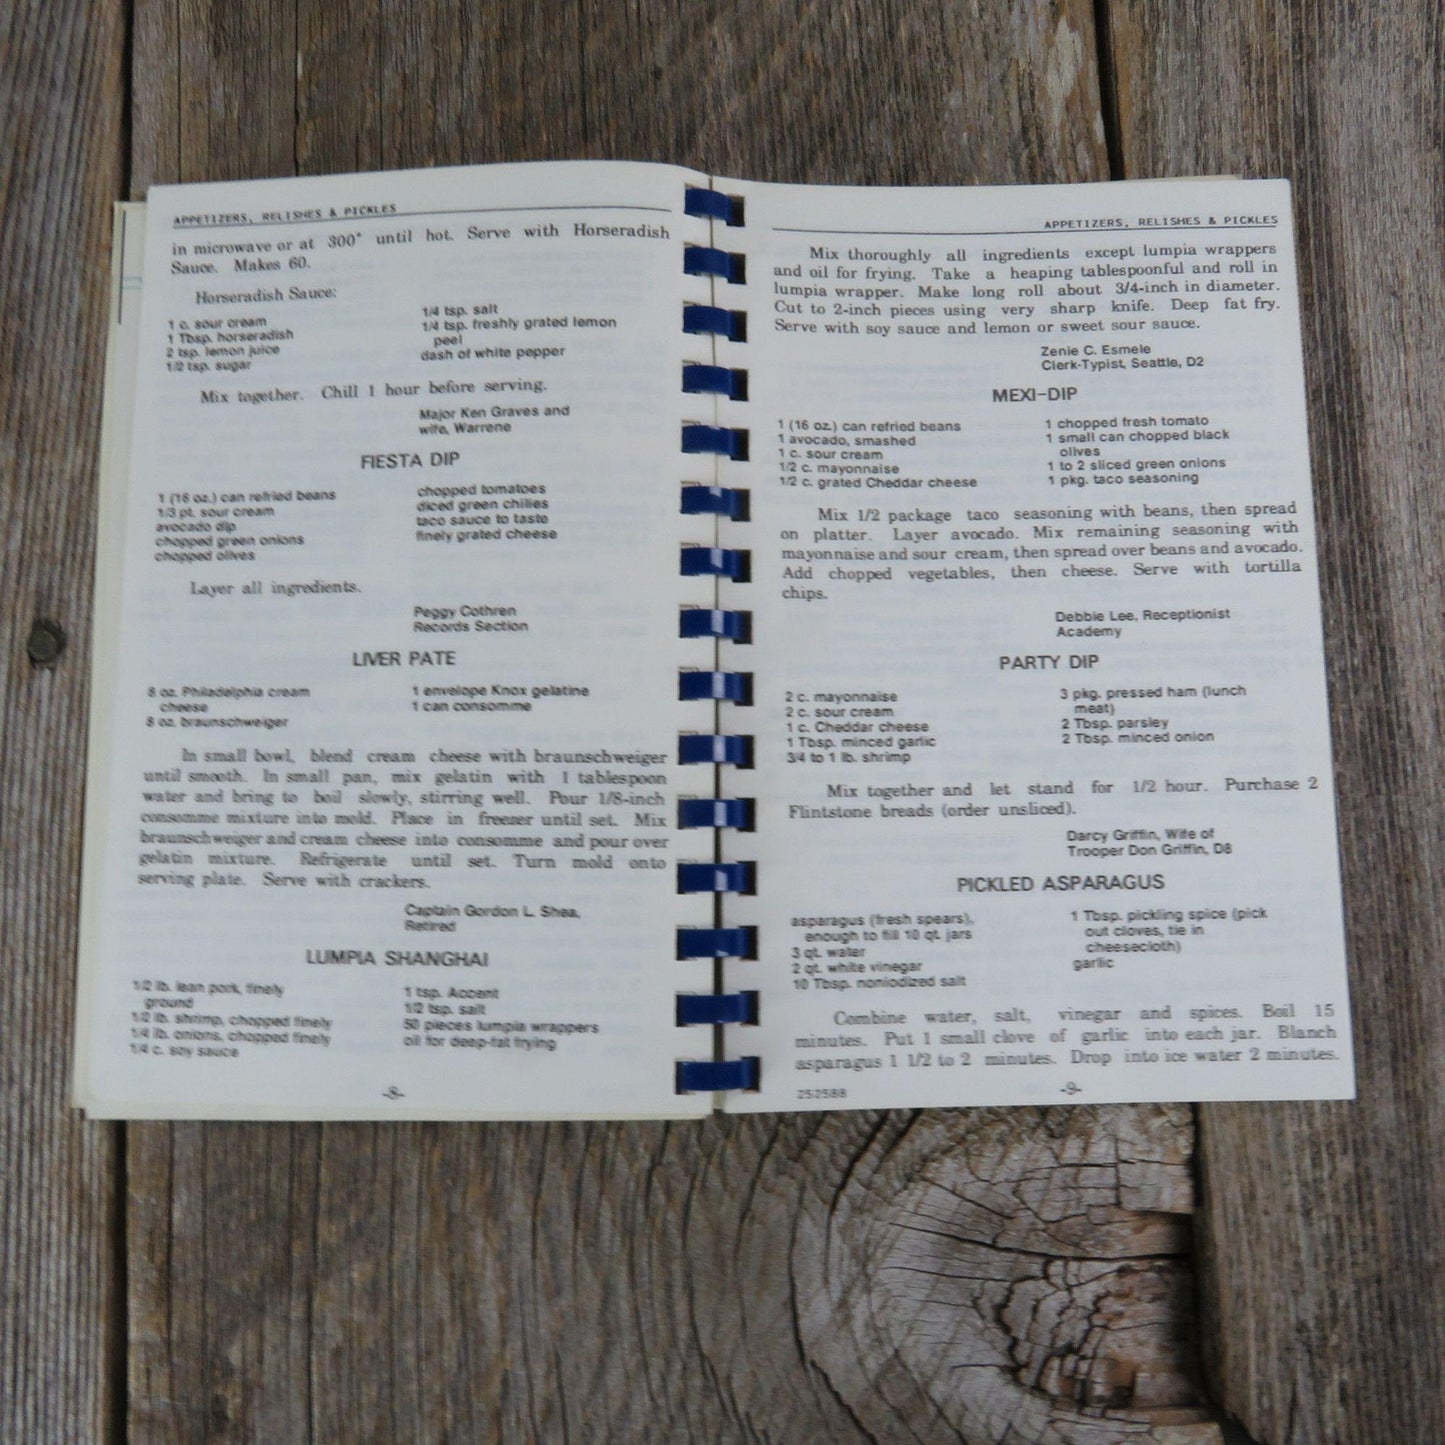 APPETIZERS, RELISHES & PICKLES
in microwave or at 300° until hot. Serve with Horseradish
Sauce. Makes 60.
Horseradish Sauce:
1 c. sour cream
1 Tbsp. horseradish
2 tsp. lemon juice
1/2 tsp. sugar
1/4 tsp. salt
1/4 tsp. freshly grated lemon
peel
dash of white pepper
Mix together. Chill 1 hour before serving.
Major Ken Graves and
wife, Warrene
FIESTA DIP
1 (16 oz.) can refried beans
1/3 pt. sour cream
avocado dip
chopped green onions
chopped olives
chopped tomatoes
diced green chilies
taco sauce to taste
finely grated cheese
Layer all ingredients.
Peggy Cothren
Records Section
LIVER PATE
8 oz. Philadelphia cream
cheese
8 oz. braunschweiger
1 envelope Knox gelatine
1 can consomme
In small bowl, blend cream cheese with braunschweiger
until smooth. In small pan, mix gelatin with 1 tablespoon
water and bring to boil slowly, stirring well. Pour 1/8-inch
consomme mixture into mold. Place in freezer until set. Mix
braunschweiger and cream cheese into consomme and pour over
gelatin mixture. Refrigerate until set. Turn mold onto
serving plate. Serve with crackers.
Captain Gordon L. Shea,
Retired
LUMPIA SHANGHAI
1/2 lb. lean pork, finely
ground
1/2 lb. shrimp, chopped finely
1/4 lb. onions, chopped finely
1/4 c. soy sauce
1 tsp. Accent
1/2 tsp. salt
50 pieces lumpia wrappers
oil for deep-fat frying
-8-
APPETIZERS, RELISHES & PICKLES
Mix thoroughly all ingredients except lumpia wrappers
and oil for frying. Take a heaping tablespoonful and roll in
lumpia wrapper. Make long roll about 3/4-inch in diameter.
Cut to 2-inch pieces using very sharp knife. Deep fat fry.
Serve with soy sauce and lemon or sweet sour sauce.
Zenie C. Esmele
Clerk-Typist, Seattle, D2
MEXI-DIP
1 (16 oz.) can refried beans
1 avocado, smashed
1 c. sour cream
1/2 c. mayonnaise
1/2 c. grated Cheddar cheese
1 chopped fresh tomato
1 small can chopped black
olives
1 to 2 sliced green onions
1 pkg. taco seasoning
Mix 1/2 package taco seasoning with beans, then spread
on platter. Layer avocado. Mix remaining seasoning with
mayonnaise and sour cream, then spread over beans and avocado.
Add chopped vegetables, then cheese. Serve with tortilla
chips.
Debbie Lee, Receptionist
Academy
PARTY DIP
2 c. mayonnaise
2 c. sour cream
1 c. Cheddar cheese
1 Tbsp. minced garlic
3/4 to 1 lb. shrimp
3 pkg. pressed ham (lunch
meat)
2 Tbsp. parsley
2 Tbsp. minced onion
Mix together and let stand for 1/2 hour. Purchase 2
Flintstone breads (order unsliced).
Darcy Griffin, Wife of
Trooper Don Griffin, D8
PICKLED ASPARAGUS
asparagus (fresh spears),
enough to fill 10 qt. jars
3 qt. water
2 qt. white vinegar
10 Tbsp. noniodized salt
1 Tbsp. pickling spice (pick
out cloves, tie in
cheesecloth)
garlic
Combine water, salt, vinegar and spices. Boil 15
minutes. Put 1 small clove of garlic into each jar. Blanch
asparagus 1 1/2 to 2 minutes. Drop into ice water 2 minutes.
252588
-9-